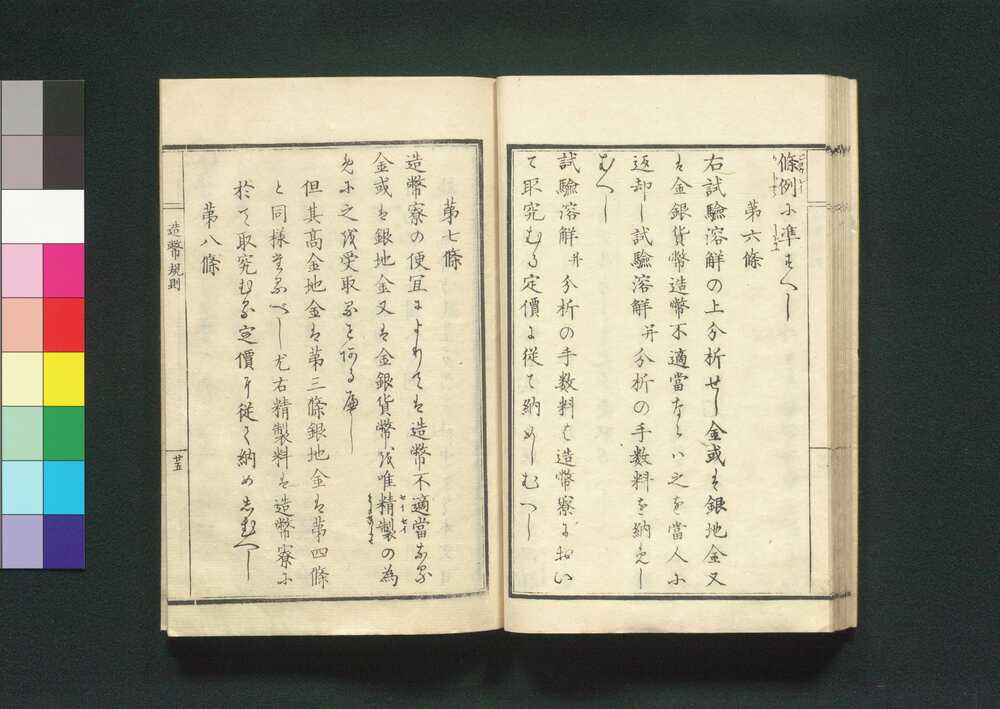 條例に準すへし
第六條
右試驗溶解の上分析せし金或は銀地金又
は金銀貨幣造幣不適當ならハ之を當人に
返却し試驗溶解并分析の手數料を納めし
むへし
試驗溶解并分析の手數料も造幣寮におい
て取究むる定價に從て納めしむへし
第七條
造幣寮の便宜によりては造幣不適當なる
金或は銀地金又は金銀貨幣を唯精製の為
めに之を受取ることある可し
但其髙金地金は第三條銀地金は第四條
と同様たるべし尤右精製料は造幣寮に
於て取究むる定價に從て納めしむへし
第八條
造幣規則
廿五